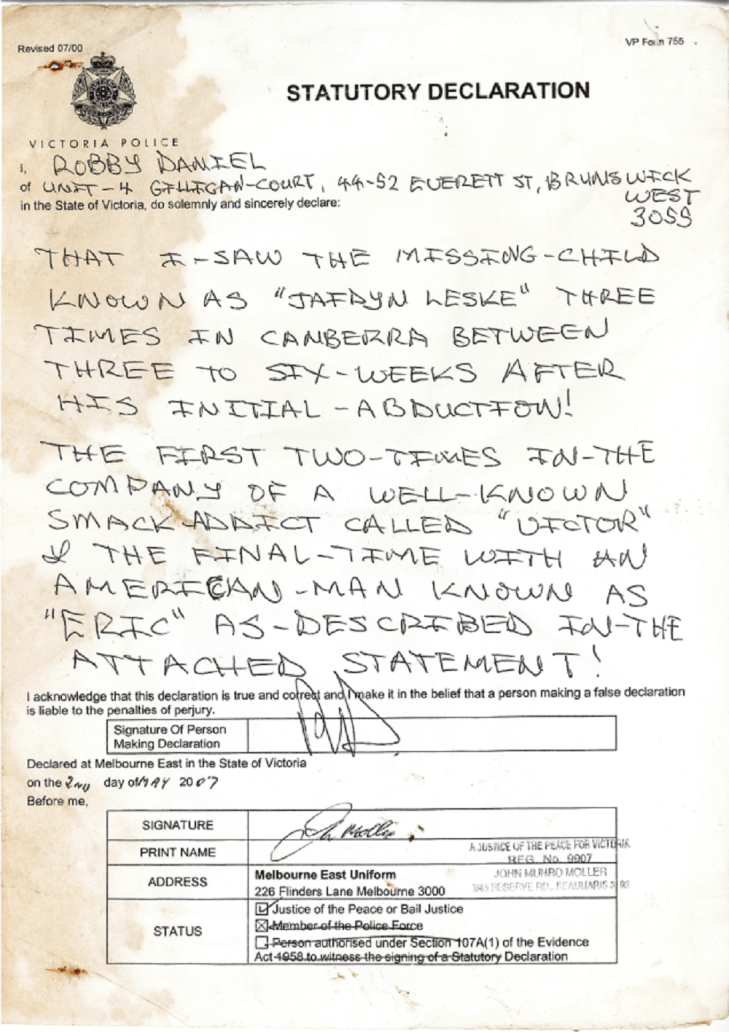 Revised 07/00
VP Form 755
STATUTORY DECLARATION
VICTORIA POLICE
I, ROBBY DANIEL
of UNIT-4 GILLIGAN-COURT, 44-52 EVERETT ST, BRUNSWICK
WEST
3055
in the State of Victoria, do solemnly and sincerely declare:
THAT I-SAW THE MISSING-CHILD
KNOWN AS "JAIDYN LESKE" THREE
TIMES IN CANBERRA BETWEEN
THREE TO SIX-WEEKS AFTER
HIS INITIAL-ABDUCTION!
THE FIRST TWO-TIMES IN-THE
COMPANY OF A WELL-KNOWN
SMACK-ADDICT CALLED "VICTOR"
& THE FINAL-TIME WITH AN
AMERICAN-MAN KNOWN AS
"ERIC" AS-DESCRIBED IN-THE
ATTACHED STATEMENT!
I acknowledge that this declaration is true and correct and I make it in the belief that a person making a false declaration
is liable to the penalties of perjury.
Signature Of Person
Making Declaration
Declared at Melbourne East in the State of Victoria
on the 2ND day of MAY 2007
Before me,
SIGNATURE
PRINT NAME
A JUSTICE OF THE PEACE FOR VICTORIA
REG. No. 9907
ADDRESS
Melbourne East Uniform
226 Flinders Lane Melbourne 3000
JOHN MUNRO MOLLER
RESERVE RD., BEAUMARIS
STATUS
Justice of the Peace or Bail Justice
Member of the Police Force
Person authorised under Section 107A(1) of the Evidence
Act 1958 to witness the signing of a Statutory Declaration